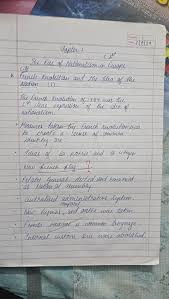 Chapter 1
The Rise of Nationalism in Europe
French Revolution and the Idea of the
Nation
The French Revolution of 1789 was the
1st clear expression of the idea of
nationalism.
Measures taken by the French revolutionaries
to create a sense of common
identity are
Ideas of la patrie and le citoyen
New French flag
Estates General elected and renamed
as National Assembly
Centralised administrative system
New hymns, and oaths was taken
French became a common language
Internal customs dues were abolished